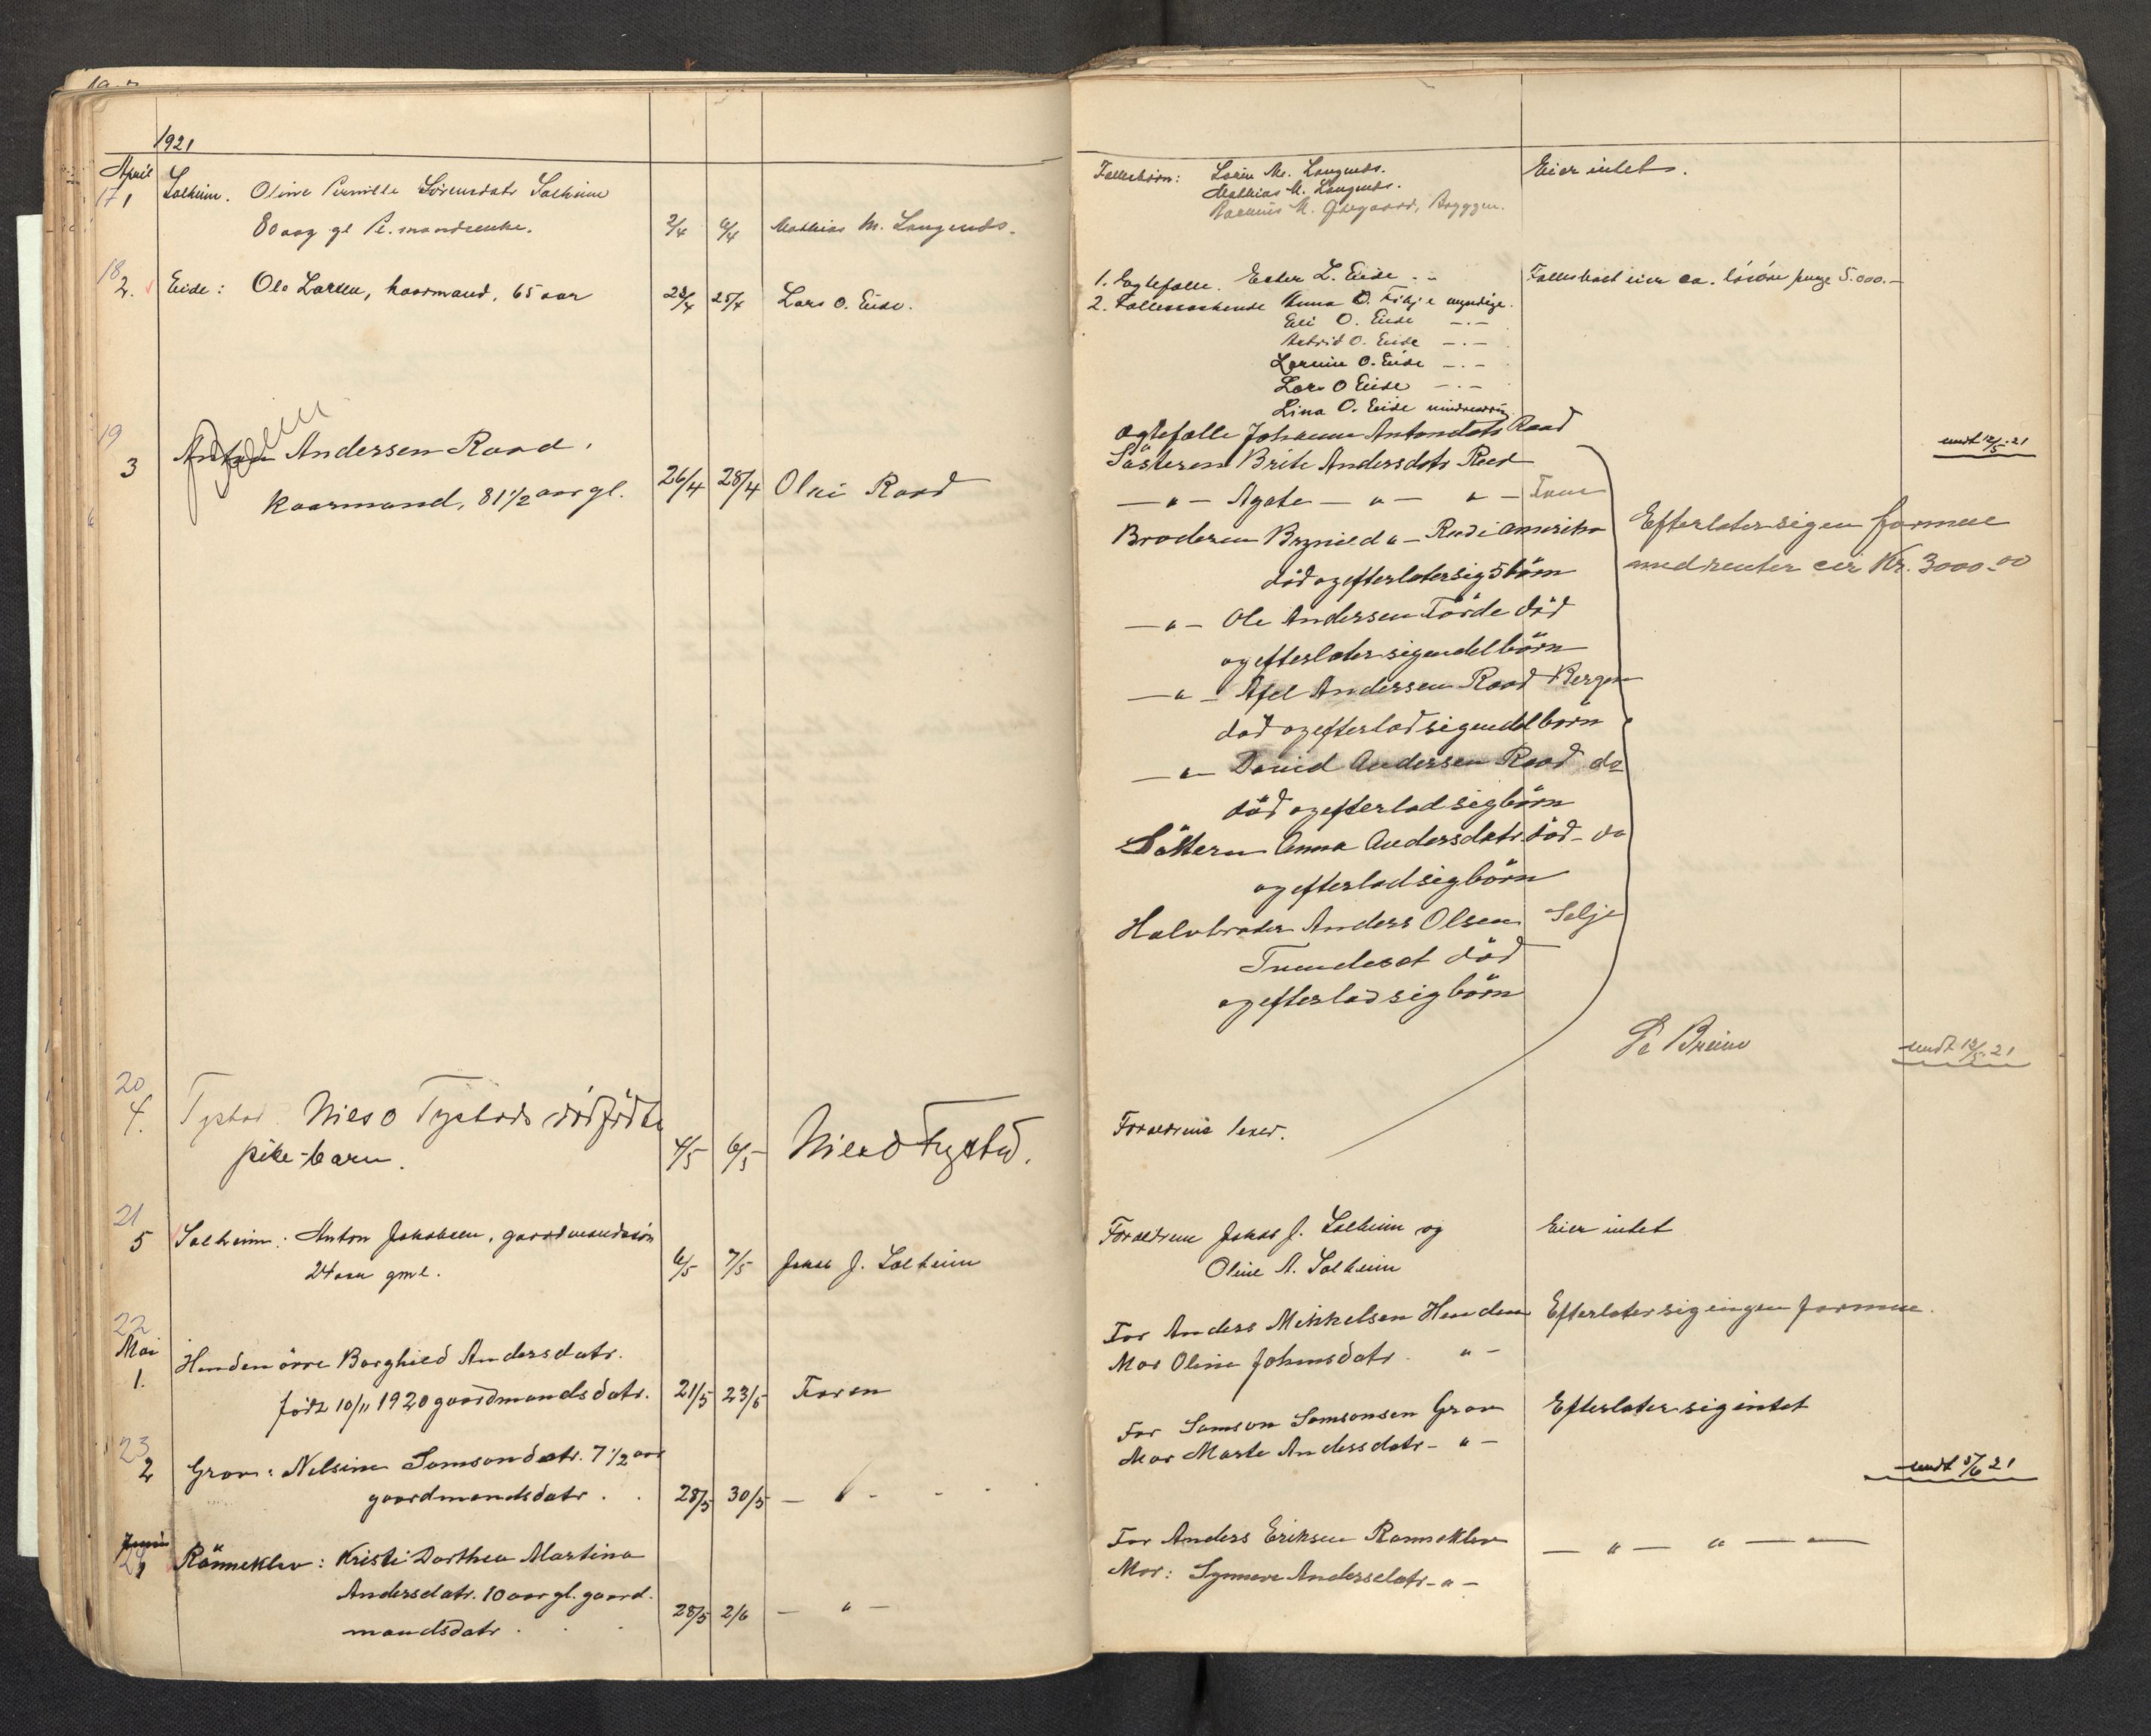 1921
April
17 1 Solheim. Oline Pernille Sörensdatr Solheim
80 aar gl. mandsenke. 2/4 6/4 Mathias M. Langenes.
18 2. Eide: Ole Larsen, kaarmand, 65 aar 23/4 25/4 Lars O. Eide.
19 3 Andersen Raad.
kaarmand, 81 1/2 aar gl. 26/4 28/4 Olai Raad
20 4. Tystad Nils O Tystads dödfödte
pike-barn. 4/5 6/5 Nils O Tystad.
21 5 Solheim: Anton Jakobsen, gaardmandssön
24 aar gml. 6/5 7/5 Jakob J. Solheim
22 Mai
1. Hendenörre Borghild Andersdatr.
född 10/11 1920 gaardmandsdatr. 21/5 23/5 Faren
23 2 Grov: Nelsine Samsondatr. 7 1/2 aar
gaardmandsdatr. 28/5 30/5 — " -
Juni
1 Rönneklev: Kristi Dorthea Martina
Andersdatr. 10 aar gl. gaard-
mandsdatr. 28/5 2/6 — " —
Fellesbörn: M. Langenes. Eier intet.
Mathias M. Langenes.
Rasmus M. Övregaard, Bryggen.
1. Egtefælle. Ester L. Eide Fellesboet eier ca. lösöre penge 5.000.—
2. Fellessöskende Anna O. myndige.
Eli O. Eide —.—
Astrid O. Eide —.—
Larsine O. Eide —.—
Lars O Eide —.—
Lina O. Eide mindreaarig
Egtefælle Johanne Antondatr Raad
sendt 12/5 21
Söstern Brite Andersdatr Reed
— " — Agate — " — " —
Broderen Brynild " — Reed i Amerika Efterlater sig en formue
död og efterlater sig 5 börn med renter cir Kr. 3000.00
— " — Ole Andersen Förde död
og efterlater sig en del börn
— " — Andersen Raad Bergen
död og efterlod sig en del börn
— " — David Andersen Raad do
död og efterlod sig börn
Söstern Anna Andersdatr. död - do
og efterlod sig börn
Halvbroder Anders Olsen Selje
död
og efterlod sig börn
sendt 12/5 21
Forældrene lever.
Forældrene Jakob J. Solheim og Eier intet
Oline A. Solheim
Far Anders Mikkelsen Henden Efterlater sig ingen formue.
Mor Oline Johansdatr. " —
Far Samson Samsonsen Grov Efterlater sig intet
Mor Marte Andersdatr — " —
sendt 3/6 21
Far Anders Eriksen Rønneklev — " — " — —
Mor: Synneve Andersdatr — " —